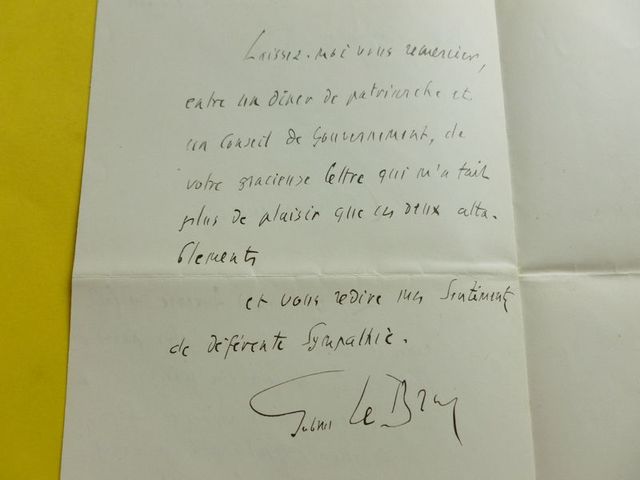 Laissez-moi vous remercier,
entre un dîner de patriarche et
un Conseil de Gouvernement, de
votre gracieuse lettre qui m'a fait
plus de plaisir que ces deux atta-
blements
et vous redire mes sentiments
de déférente sympathie.
Le Bray